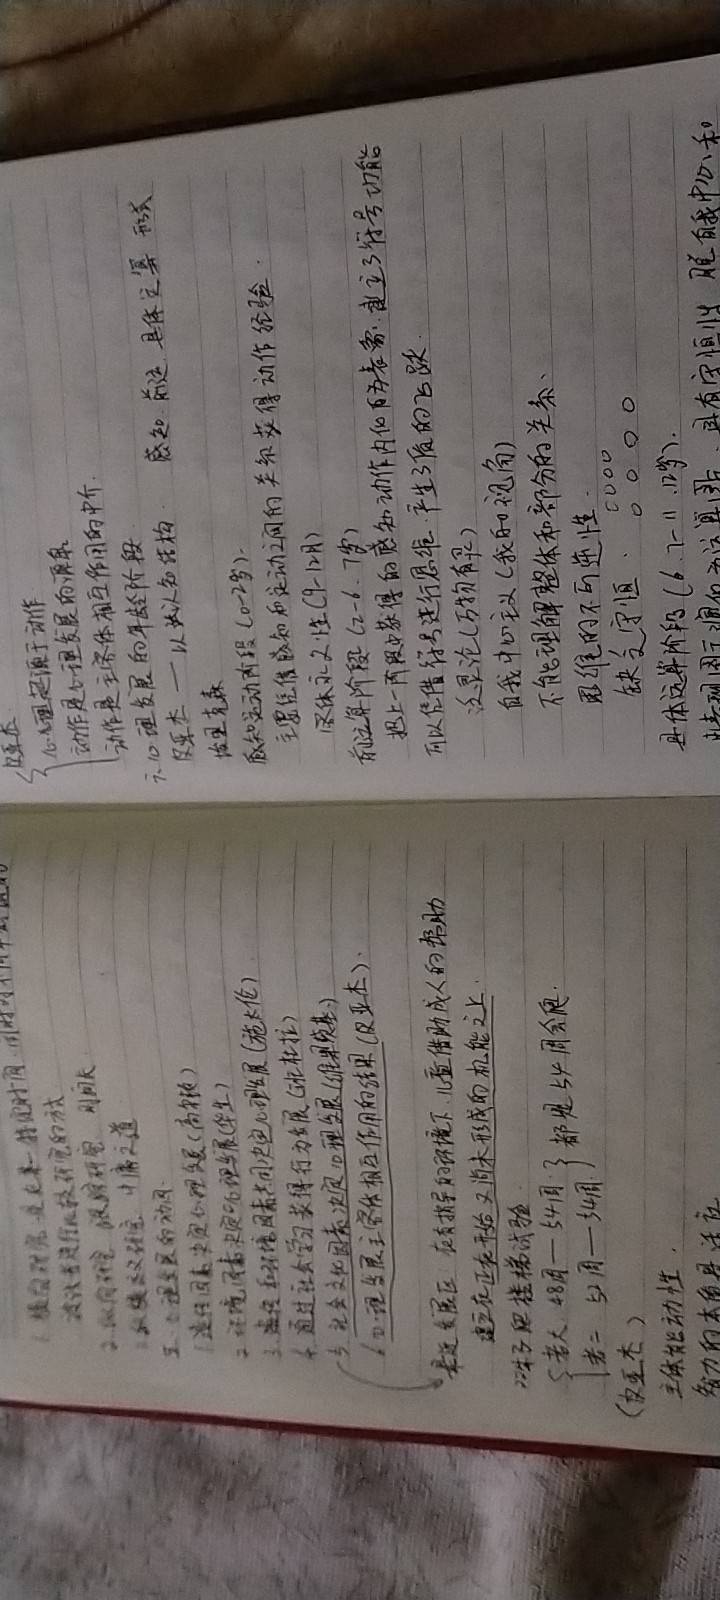 1. 横向研究 是在某一特定时间 同时对不同年龄组的
被试者进行比较研究的方法
2. 纵向研究 跟踪研究 时间长
3. 纵横交叉研究 中庸之道
五. 心理发展的动因
1. 遗传因素决定心理发展(高尔顿)
2. 环境因素决定心理发展(华生)
3. 遗传和环境因素共同决定心理发展(施太伦)
4. 通过社会学习获得行为发展(班杜拉)
5. 社会文化因素决定心理发展(维果茨基)
6. 心理发展主客体相互作用的结果(皮亚杰).
最近发展区: 在有指导的环境下, 儿童借助成人的帮助
建立在正在开始又尚未形成的机能之上.
双生子爬楼梯试验
老大 48周—54周
老二 52周—54周
都是54周会爬.
(皮亚杰)
主体能动性.
智力的本质是适应
皮亚杰
心理起源于动作
动作是心理发展的源泉
动作是主客体相互作用的中介.
六. 心理发展的年龄阶段
皮亚杰 — 以认知结构. 感知 前运 具体运算 形式
感知运动阶段(0-2岁).
主要凭借感知和运动之间的关系获得动作经验.
客体永久性(9-12月)
前运算阶段(2-6.7岁)
把上一阶段中获得的感知动作内化为表象, 建立了符号功能
可以凭借符号进行思维, 产生了质的飞跃.
泛灵论(万物有灵)
自我中心主义(我的视角)
不能理解整体和部分的关系、
思维的不可逆性.
缺乏守恒.
具体运算阶段(6.7-11.12岁).
具有守恒性 脱自我中心和